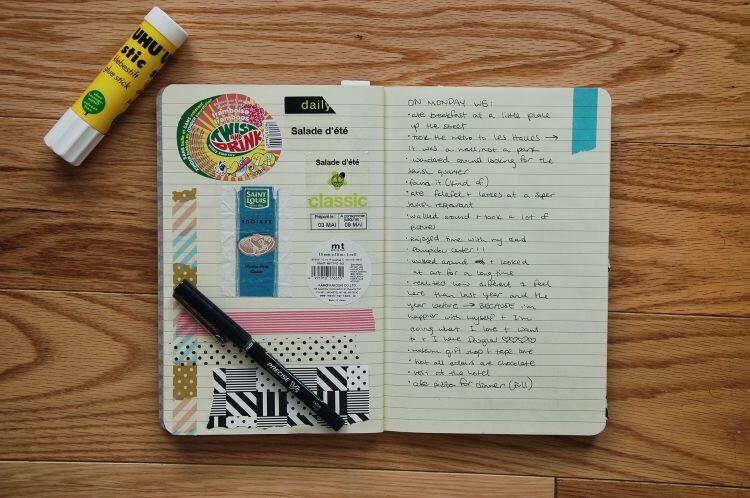 UHU
stic
klebestift
glue stick
framboise
framboos
TWIST
AND
DRINK
daily
Salade d'été
Salade d'été
classic
Préparé le:
03 MAI
09 MAI
SAINT
LOUIS
mt
15 mm x 10 m : 1 roll
KAMOI KAKOSHI CO.LTD
PRECISE V5
ON MONDAY WE:
• ate breakfast at a little place
up the street
• took the metro to Les Halles →
it was a mall, not a park
• wandered around looking for the
Jewish quarter
• found it (kind of)
• ate falafel + latkes at a super
Jewish restaurant
• walked around + took a lot of
pictures
• enjoyed time with my dad
• Pompidou center!!
• walked around + looked
at art for a long time
• realized how different I feel
here than last year and the
year before → BECAUSE i'm
happier with myself + I'm
doing what I love + want
to + I have Douglas ♡♡♡♡
• museum gift shop + tape love
• not all eclairs are chocolate
• rest at the hotel
• ate pizza for dinner (full)